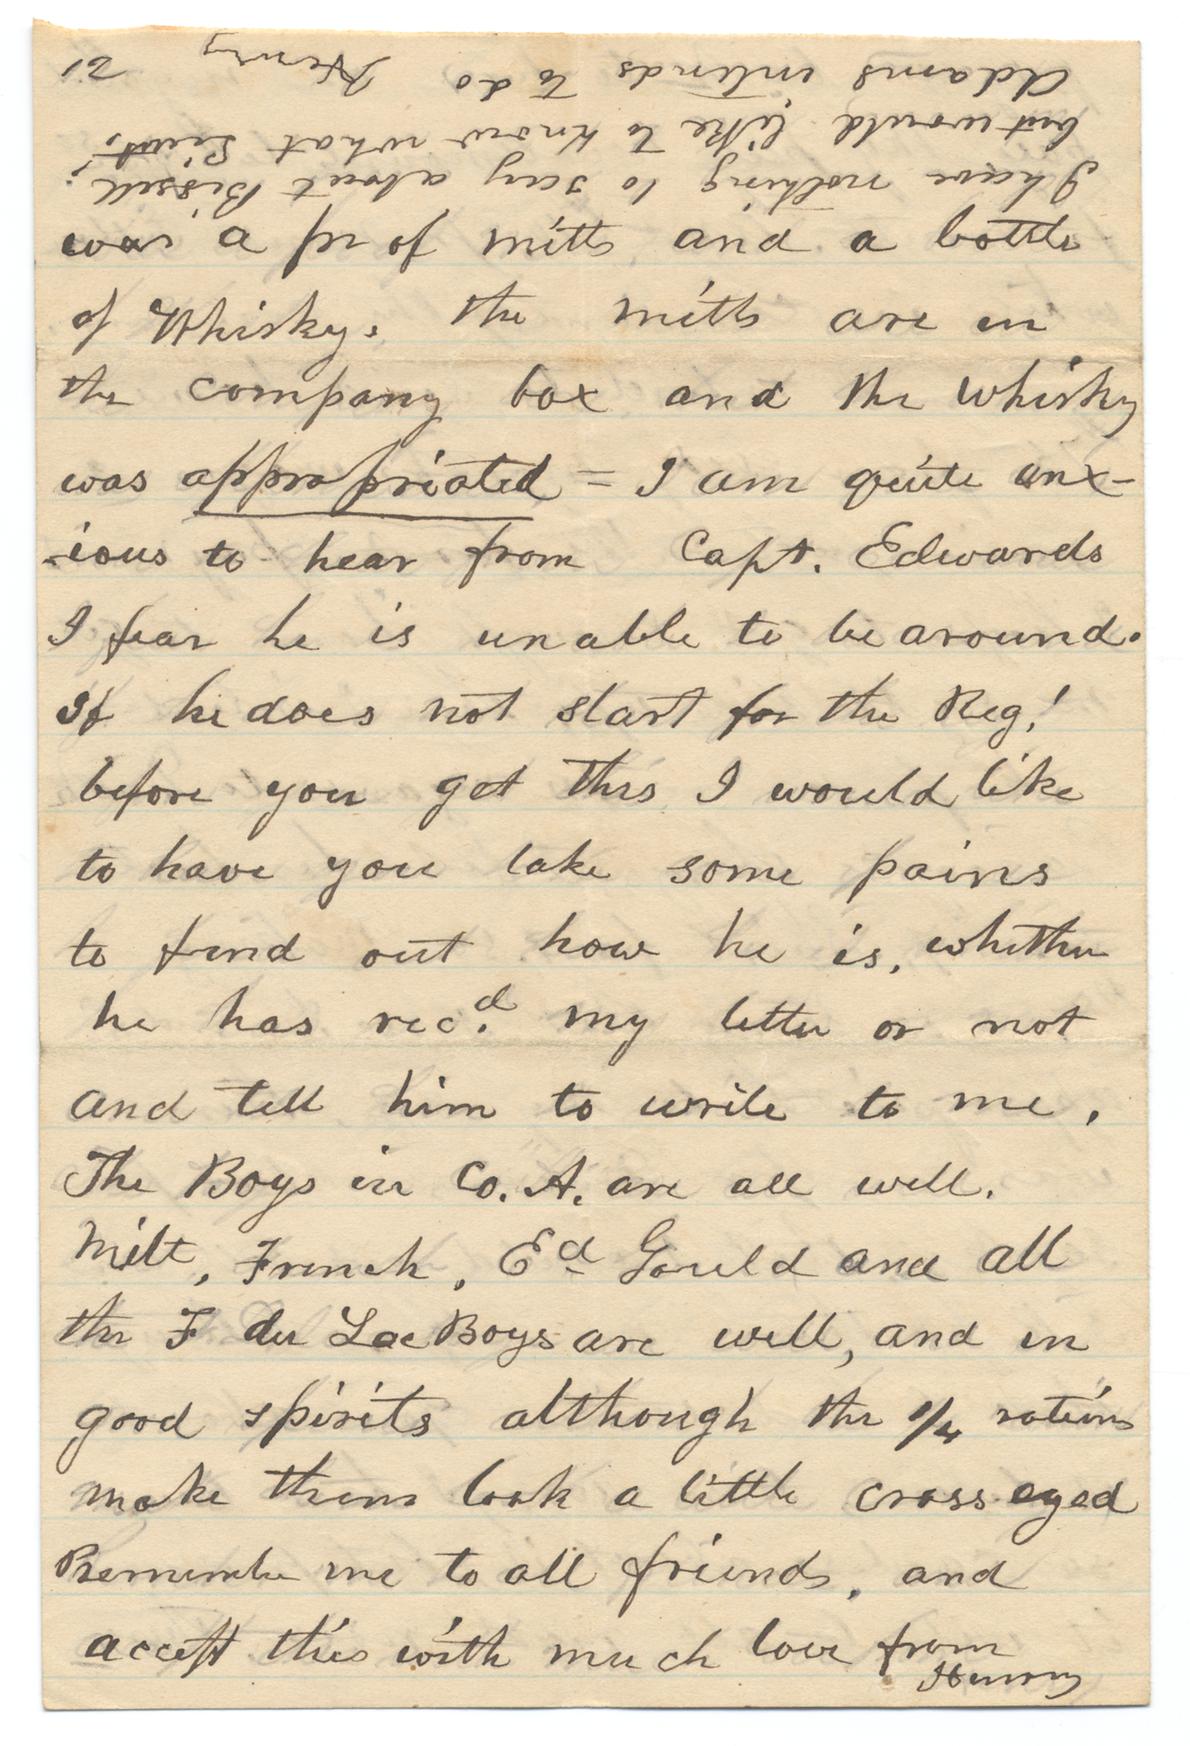 I have nothing to say about Bissell.
but would like to know what Lieut.
Adams intends to do Henry
was a pr of mitts and a bottle
of Whisky. the mitts are in
the company box and the whisky
was appropriated = I am quite anx-
-ious to hear from Capt. Edwards
I fear he is unable to be around.
If he does not start for the Reg!
before you get this I would like
to have you take some pains
to find out how he is, whether
he has rec.d my letter or not
and tell him to write to me.
The Boys in Co. A. are all well.
Milt, French, Ed Gould and all
the F du Lac Boys are well, and in
good spirits although the 1/4 rations
make them look a little cross eyed
Remember me to all friends, and
accept this with much love from
Henry